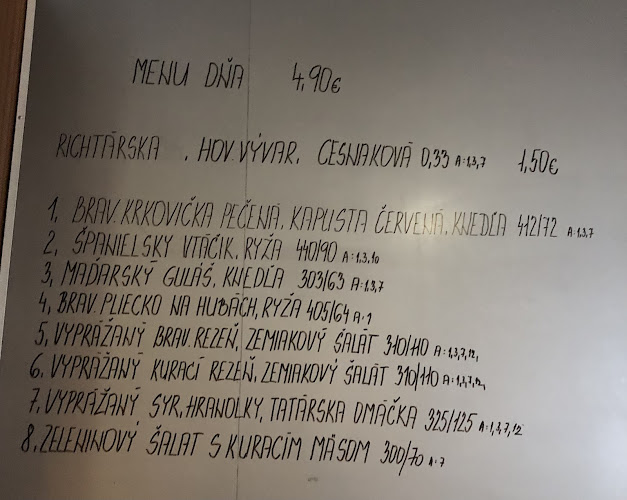 MENU DŇA 4,90€
RICHTÁRSKA , HOV. VÝVAR, CESNAKOVÁ 0,33 A:1,3,7 1,50€
1, BRAV. KRKOVIČKA PEČENÁ, KAPUSTA ČERVENÁ, KNEDĽA 412/72 A:1,3,7
2, ŠPANIELSKY VTÁČIK, RYŽA 440/90 A:1,3,10
3, MAĎARSKÝ GULÁŠ, KNEDĽA 303/63 A:1,3,7
4, BRAV. PLIECKO NA HUBÁCH, RYŽA 405/64 A:1
5, VYPRÁŽANÝ BRAV. REZEŇ, ZEMIAKOVÝ ŠALÁT 310/110 A:1,3,7,12,
6, VYPRÁŽANÝ KURACÍ REZEŇ, ZEMIAKOVÝ ŠALÁT 310/110 A:1,3,7,12,
7, VYPRÁŽANÝ SYR, HRANOLKY, TATÁRSKA OMÁČKA 325/125 A:1,3,7,12
8, ZELENINOVÝ ŠALAT S KURACÍM MÄSOM 300/70 A:7